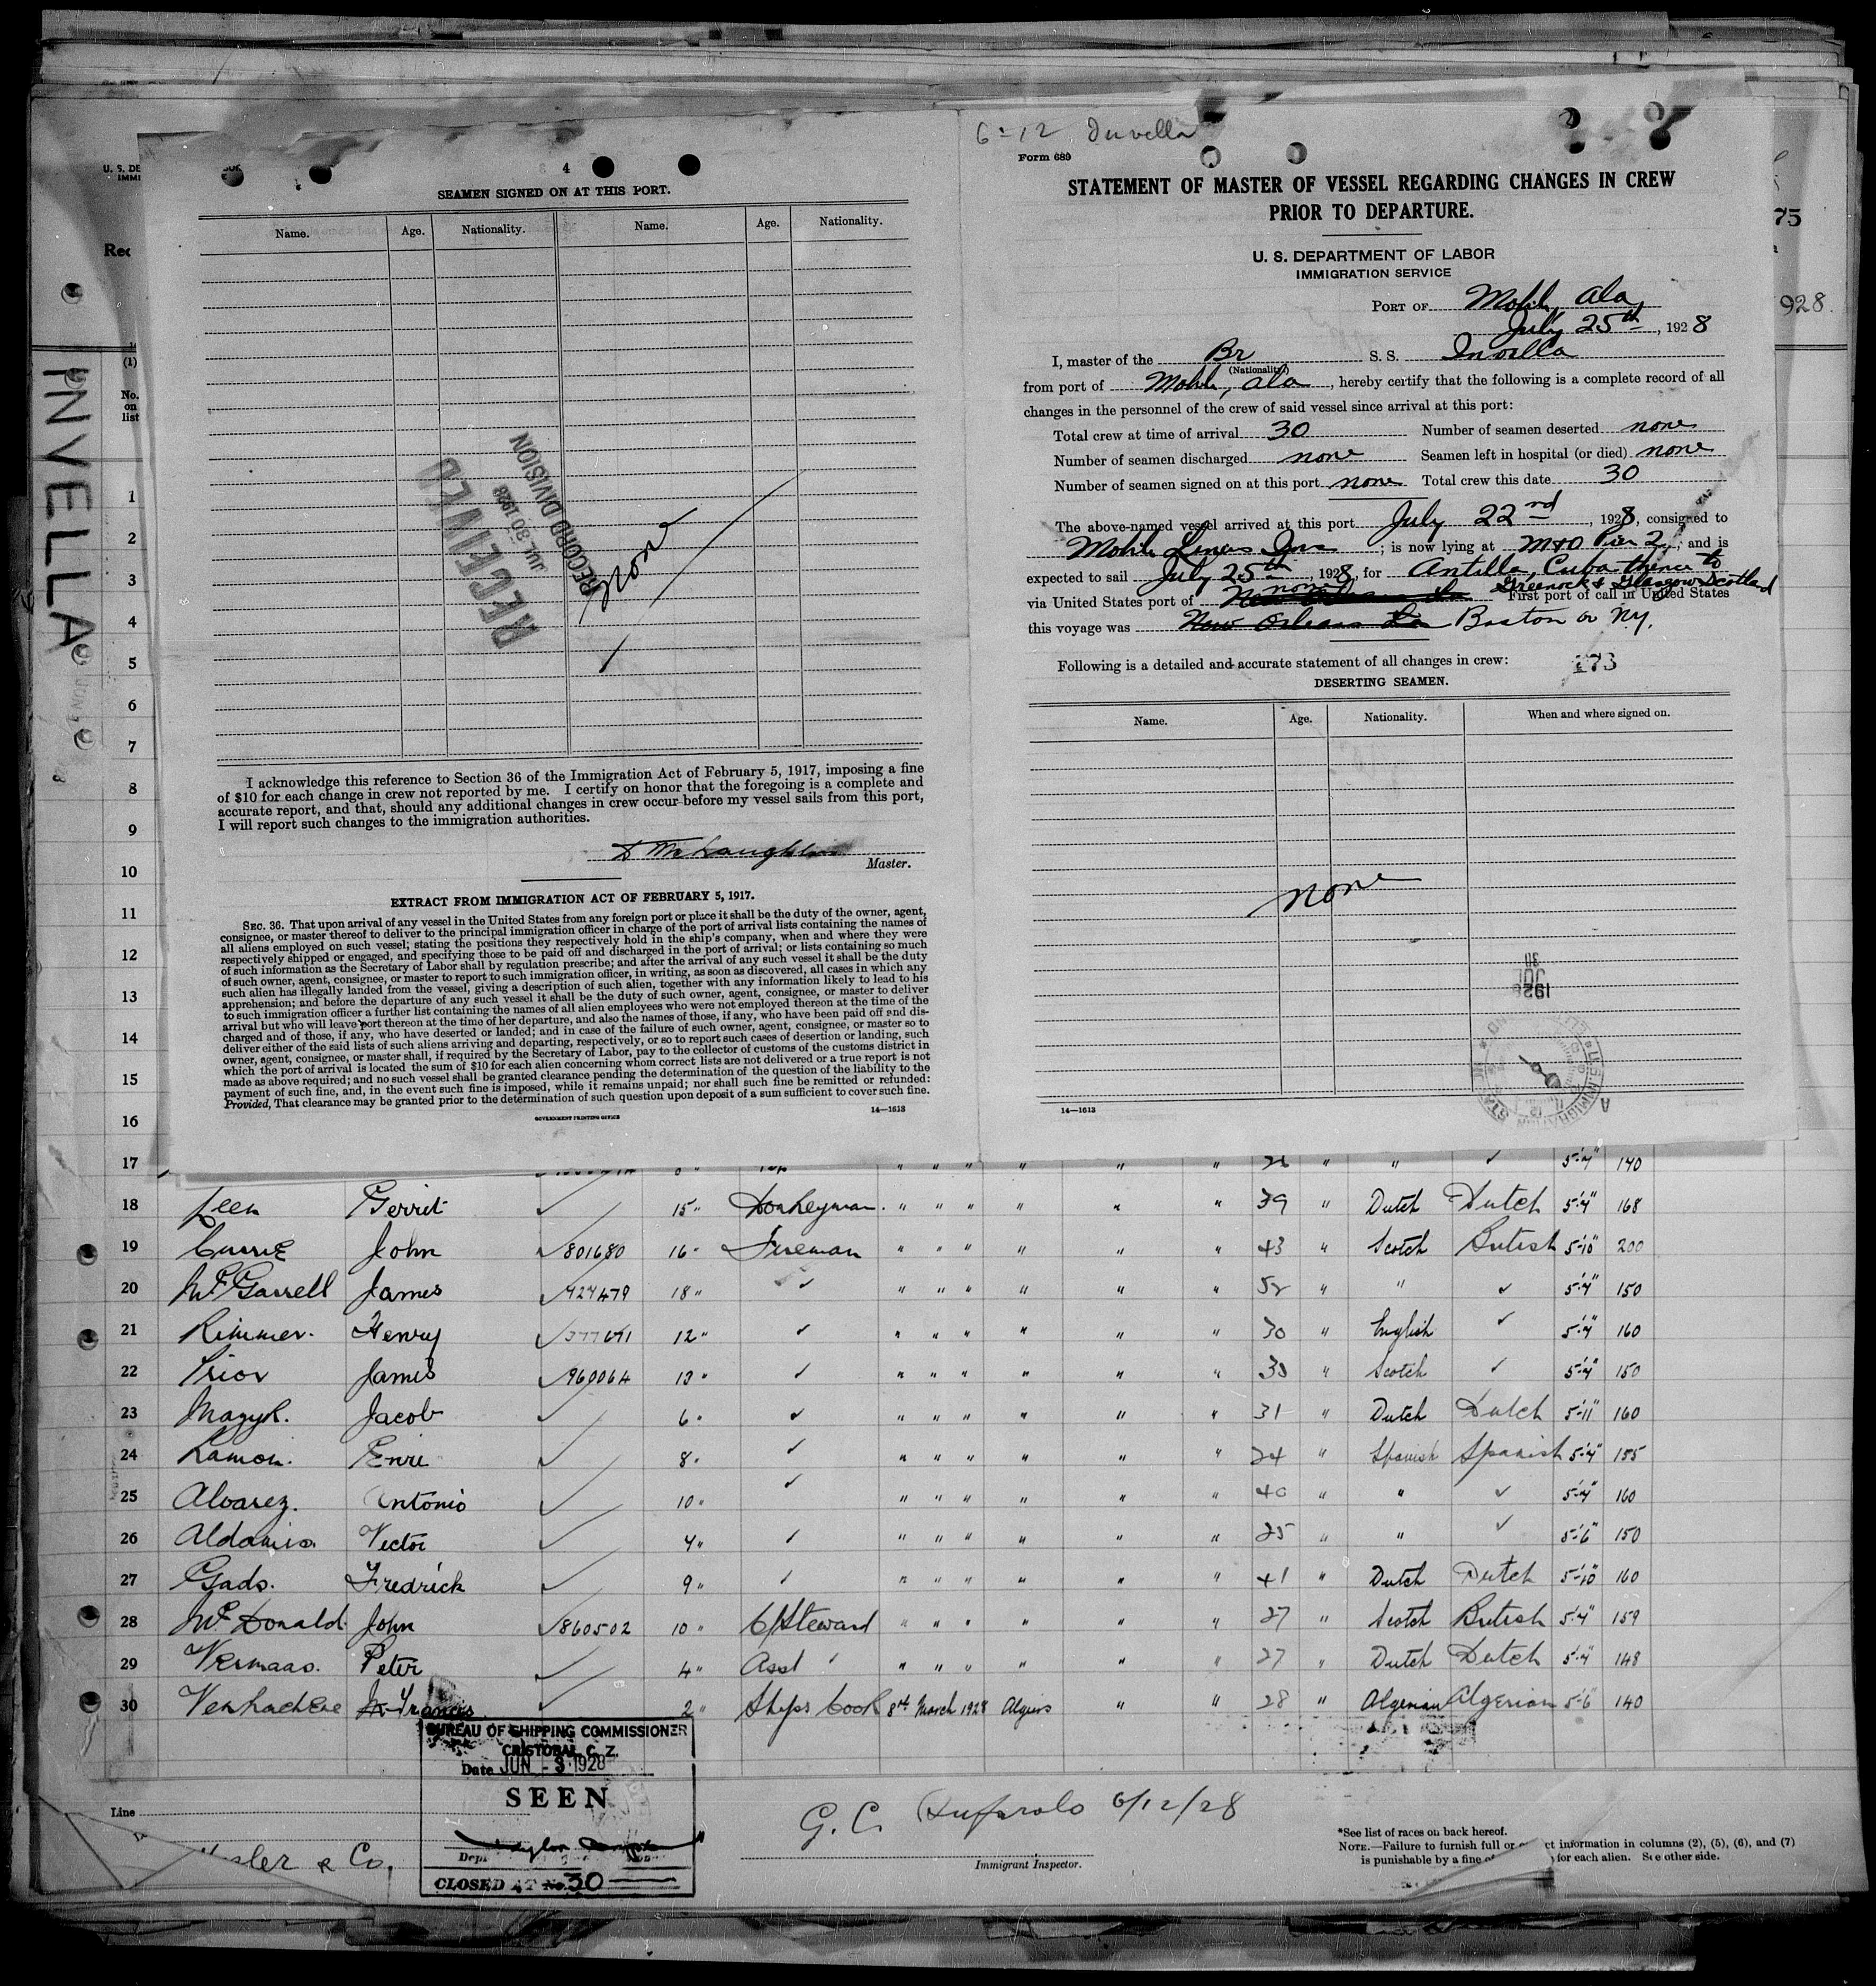 INVELLA
U. S. DE
IMMI
Rec
(1)
No.
on
list
75
928.
4
SEAMEN SIGNED ON AT THIS PORT.
Name. Age. Nationality. Name. Age. Nationality.
RECEIVED
JUL 30 1928
RECORD DIVISION
none
I acknowledge this reference to Section 36 of the Immigration Act of February 5, 1917, imposing a fine
of $10 for each change in crew not reported by me. I certify on honor that the foregoing is a complete and
accurate report, and that, should any additional changes in crew occur before my vessel sails from this port,
I will report such changes to the immigration authorities.
D McLaughlin
Master.
EXTRACT FROM IMMIGRATION ACT OF FEBRUARY 5, 1917.
SEC. 36. That upon arrival of any vessel in the United States from any foreign port or place it shall be the duty of the owner, agent,
consignee, or master thereof to deliver to the principal immigration officer in charge of the port of arrival lists containing the names of
all aliens employed on such vessel; stating the positions they respectively hold in the ship's company, when and where they were
respectively shipped or engaged, and specifying those to be paid off and discharged in the port of arrival; or lists containing so much
of such information as the Secretary of Labor shall by regulation prescribe; and after the arrival of any such vessel it shall be the duty
of such owner, agent, consignee, or master to report to such immigration officer, in writing, as soon as discovered, all cases in which any
such alien has illegally landed from the vessel, giving a description of such alien, together with any information likely to lead to his
apprehension; and before the departure of any such vessel it shall be the duty of such owner, agent, consignee, or master to deliver
to such immigration officer a further list containing the names of all alien employees who were not employed thereon at the time of the
arrival but who will leave port thereon at the time of her departure, and also the names of those, if any, who have been paid off and dis-
charged and of those, if any, who have deserted or landed; and in case of the failure of such owner, agent, consignee, or master so to
deliver either of the said lists of such aliens arriving and departing, respectively, or so to report such cases of desertion or landing, such
owner, agent, consignee, or master shall, if required by the Secretary of Labor, pay to the collector of customs of the customs district in
which the port of arrival is located the sum of $10 for each alien concerning whom correct lists are not delivered or a true report is not
made as above required; and no such vessel shall be granted clearance pending the determination of the question of the liability to the
payment of such fine, and, in the event such fine is imposed, while it remains unpaid; nor shall such fine be remitted or refunded:
Provided, That clearance may be granted prior to the determination of such question upon deposit of a sum sufficient to cover such fine.
14—1613
GOVERNMENT PRINTING OFFICE
6-12 Invella
Form 689
STATEMENT OF MASTER OF VESSEL REGARDING CHANGES IN CREW
PRIOR TO DEPARTURE.
U. S. DEPARTMENT OF LABOR
IMMIGRATION SERVICE
PORT OF Mobile, Ala,
July 25th, 1928
I, master of the Br S. S. Invella
(Nationality)
from port of Mobile, Ala, hereby certify that the following is a complete record of all
changes in the personnel of the crew of said vessel since arrival at this port:
Total crew at time of arrival 30 Number of seamen deserted none
Number of seamen discharged none Seamen left in hospital (or died) none
Number of seamen signed on at this port none Total crew this date 30
The above-named vessel arrived at this port July 22nd, 1928, consigned to
Mobile Liners Inc ; is now lying at M&O Pier 2, and is
expected to sail July 25th, 1928, for Antilla, Cuba thence to
Greenock & Glasgow Scotland
via United States port of none New Orleans La First port of call in United States
this voyage was New Orleans La Boston or N.Y.
Following is a detailed and accurate statement of all changes in crew: 173
DESERTING SEAMEN.
Name. Age. Nationality. When and where signed on.
none
14—1613
1
2
3
4
5
6
7
8
9
10
11
12
13
14
15
16
17 " " " " " " 26 " " ✓ 5'4" 140
18 Leen Gerrit ✓ 15" Donkeyman. " " " " " " 39 " Dutch Dutch 5'4" 168
19 Currie John ✓801680 16" Fireman " " " " " " 43 " Scotch British 5'10" 200
20 McGarrell James ✓424479 18" ✓ " " " " " " 52 " " ✓ 5'4" 150
21 Rimmer. Henry ✓ 12" ✓ " " " " " " 30 " English ✓ 5'4" 160
22 Prior James ✓960064 13" ✓ " " " " " " 30 " Scotch ✓ 5'4" 150
23 Jacob ✓ 6" ✓ " " " " " " 31 " Dutch Dutch 5'11" 160
24 Ramon. Enri ✓ 8" ✓ " " " " " " 24 " Spanish Spanish 5'4" 155
25 Alvarez. Antonio ✓ 10" ✓ " " " " " " 40 " " ✓ 5'4" 160
26 Victor ✓ 4" ✓ " " " " " " 25 " " ✓ 5'6" 150
27 Gado. Fredrick ✓ 9" ✓ " " " " " " 41 " Dutch Dutch 5'10" 160
28 McDonald John ✓860502 10" C/Steward " " " " " " 27 " Scotch British 5'4" 159
29 Vermaas. Peter ✓ 4" Asst " " " " " " " 27 " Dutch Dutch 5'4" 148
30 Francis ✓ 2" Ships Cook 8th March 1928 Algiers " " 28 " Algerian Algerian 5'6" 140
BUREAU OF SHIPPING COMMISSIONER
CRISTOBAL, C. Z.
Date JUN - 3 1928
SEEN
CLOSED AT No. 30
Line
& Co.
G. C. 6/12/28
Immigrant Inspector.
*See list of races on back hereof.
NOTE.—Failure to furnish full or ct information in columns (2), (5), (6), and (7)
is punishable by a fine of for each alien. See other side.